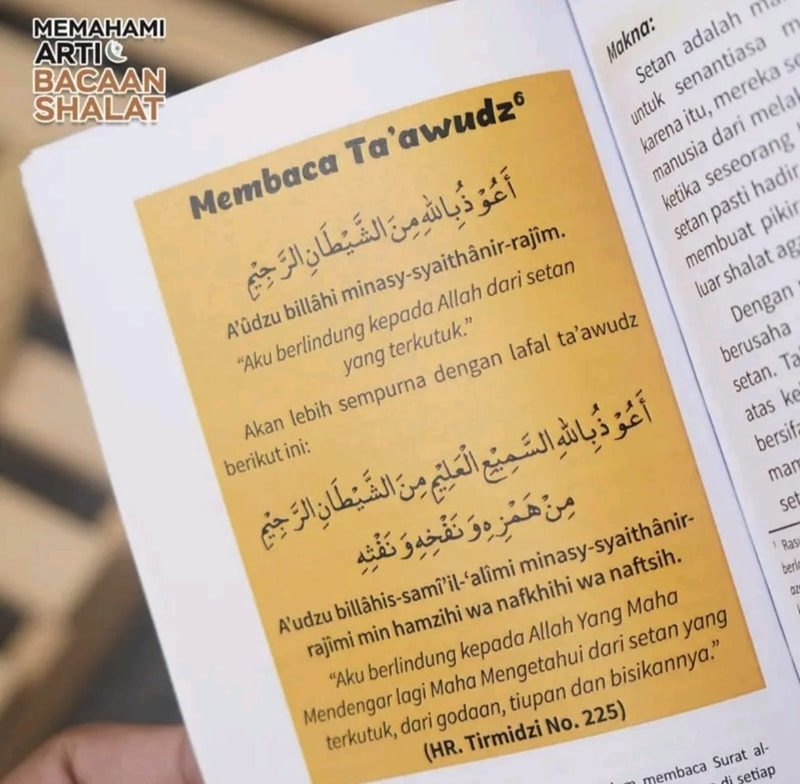 MEMAHAMI
ARTI
BACAAN
SHALAT
Membaca Ta'awudz⁶
أَعُوْذُبِاللهِ مِنَ الشَّيْطَانِ الرَّجِيْمِ
A'ûdzu billâhi minasy-syaithânir-rajîm.
"Aku berlindung kepada Allah dari setan
yang terkutuk."
Akan lebih sempurna dengan lafal ta'awudz
berikut ini:
أَعُوْذُبِاللهِ السَّمِيْعِ الْعَلِيْمِ مِنَ الشَّيْطَانِ الرَّجِيْمِ
مِنْ هَمْزِهِ وَ نَفْخِهِ وَ نَفْثِهِ
A'udzu billâhis-samî'il-'alîmi minasy-syaithânir-
rajîmi min hamzihi wa nafkhihi wa naftsih.
"Aku berlindung kepada Allah Yang Maha
Mendengar lagi Maha Mengetahui dari setan yang
terkutuk, dari godaan, tiupan dan bisikannya."
(HR. Tirmidzi No. 225)
Makna:
Setan adalah
untuk senantiasa
karena itu, mereka
manusia dari
ketika seseorang
setan pasti hadir
membuat pikir
luar shalat
Dengan
berusaha
setan.
atas
membaca Surat al-
di setiap